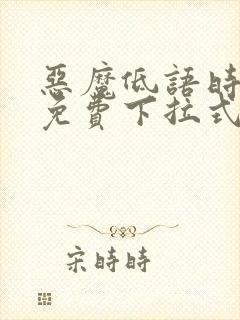 惡魔低語時
免費下拉式
宋時時